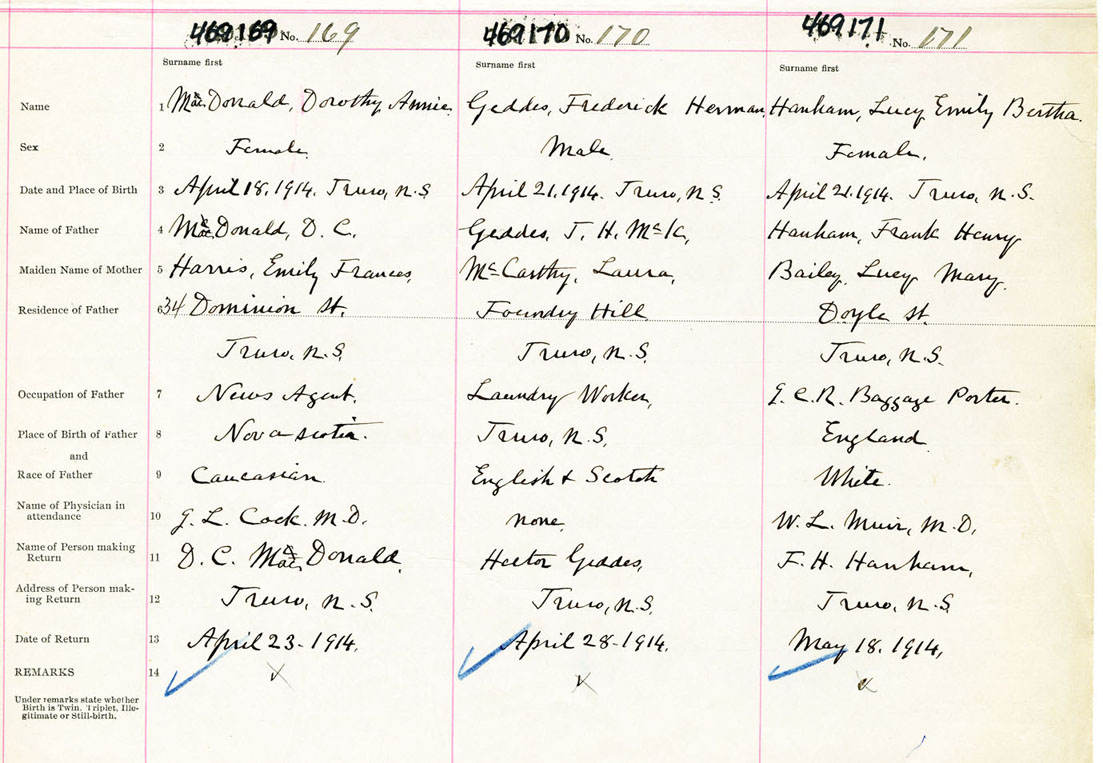 469169 No. 169 469170 No. 170 469171 No. 171
Surname first Surname first Surname first
Name 1 MacDonald, Dorothy Annie Geddes, Frederick Herman, Hanham, Lucy Emily Bertha.
Sex 2 Female. Male. Female.
Date and Place of Birth 3 April 18, 1914. Truro, N.S. April 21, 1914. Truro, N.S. April 21. 1914. Truro, N.S.
Name of Father 4 MacDonald, D. C. Geddes, J. H. McK, Hanham, Frank Henry
Maiden Name of Mother 5 Harris, Emily Frances, McCarthy, Laura, Bailey, Lucy Mary.
Residence of Father 6 34 Dominion St. Foundry Hill Doyle St.
Truro, N.S. Truro, N.S. Truro, N.S.
Occupation of Father 7 News Agent. Laundry Worker, Baggage Porter.
Place of Birth of Father 8 Nova Scotia. Truro, N.S. England
and
Race of Father 9 Caucasian English & Scotch White.
Name of Physician in
attendance 10 G. L. Cock. M.D. none. W. L. Muir, M.D.
Name of Person making
Return 11 D. C. MacDonald. Hector Geddes, F. H. Hanham,
Address of Person mak-
ing Return 12 Truro, N.S. Truro, N.S. Truro, N.S.
Date of Return 13 April 23 - 1914. April 28 - 1914. May 18, 1914,
REMARKS 14
Under remarks state whether
Birth is Twin, Triplet, Ille-
gitimate or Still-birth.